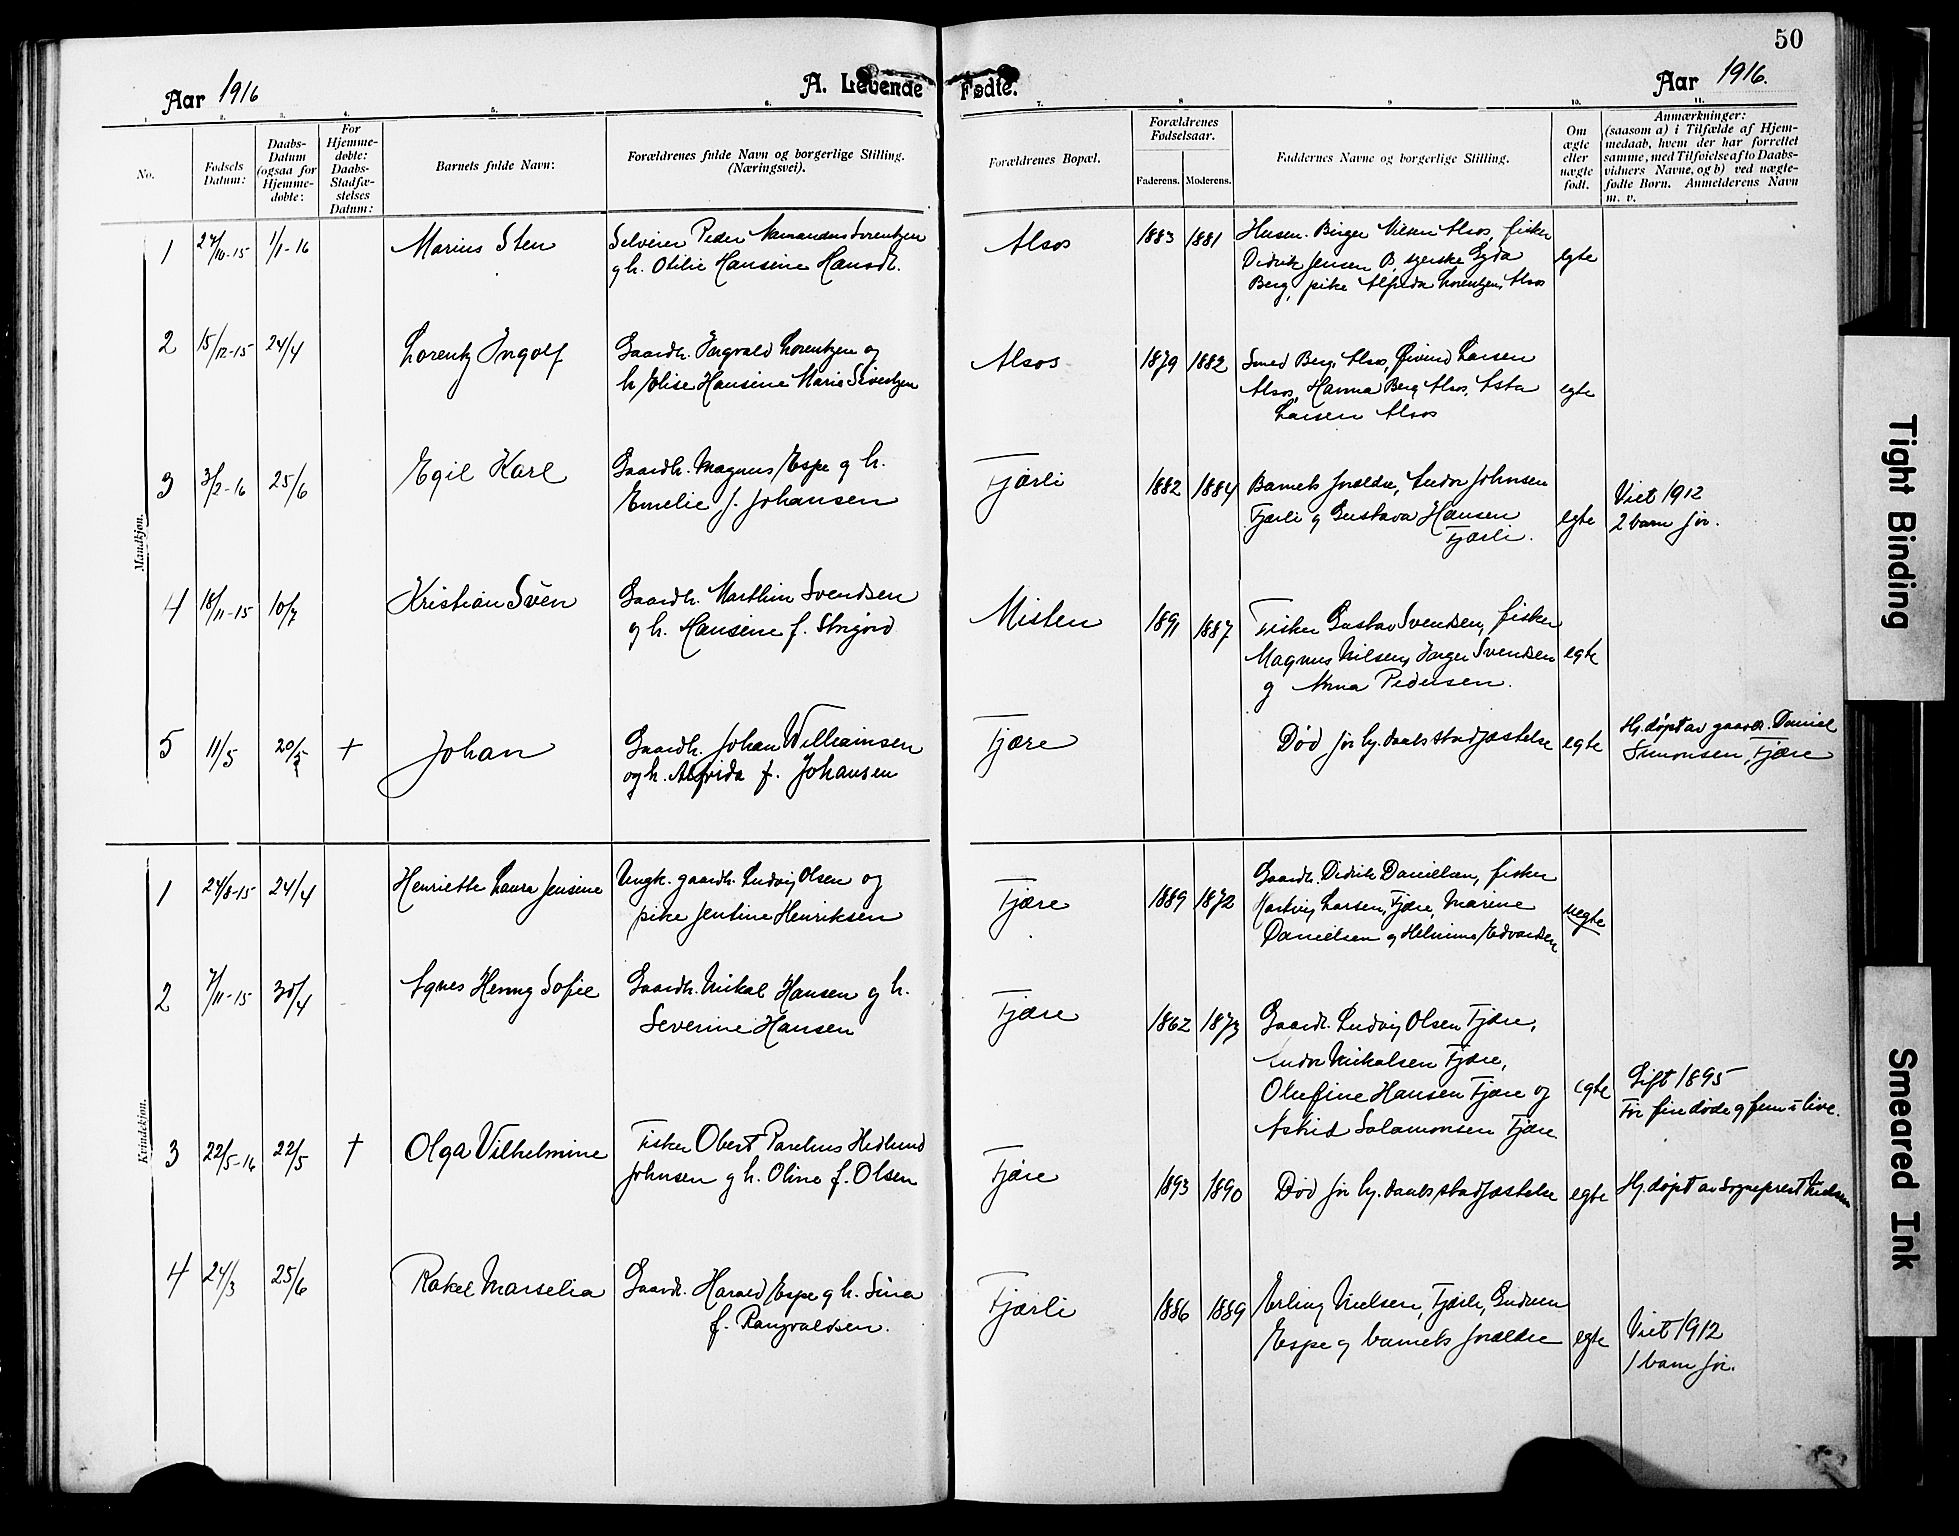 50
Aar 1916
A. Levende Fødte.
Aar 1916.
1. 2. 3. 4. 5. 6. 7. 8 9 10. 11.
No.
Fødsels Datum:
Daabs-Datum (ogsaa for Hjemmedøbte:
For Hjemmedøbte: Daabs-Stadfæstelses Datum:
Barnets fulde Navn:
Forældrenes fulde Navn og borgerlige Stilling. (Næringsvei).
Forældrenes Bopæl.
Forældrenes Fødselsaar.
Faderens. Moderens.
Faddernes Navne og borgerlige Stilling.
Om ægte eller uægte født.
Anmærkninger:
(saasom a) i Tilfælde af Hjem-
medaab, hvem der har forrettet
samme, med Tilføielse af to Daabs-
vidners Navne, og b) ved uægte-
fødte Børn. Anmelderens Navn
m. v.
Mandkjøn.
1 27/10-15 1/1-16 Marius Sten
Selveier Peder Lorentzen
g h. Otilie Hansine Hansdt.
Alsos 1883 1881
Birger Nilsen Alsos, fisker
Didrik Jensen B, syerske Gyda
Berg, pike Alfrida Lorentzen, Alsos
egte
2 15/12-15 24/4 Lorentz Ingolf
Gaardb. Ingvald Lorentzen og
h. Jolise Hansine Marie Sivertzen
Alsos 1879 1882
Smed Berg, Alsos, Øivind Larsen
Alsos, Hanna Berg Alsos, Asta
Larsen Alsos
egte
3 3/2-16 25/6 Egil Karl
Gaardb. Magnus Espe g h.
Emelie f. Johansen
Tjærli 1882 1884
Barnets forældre, Andor Johnsen
Tjærli g Gustava Hansen
Tjærli.
egte
Viet 1912
2 barn før.
4 18/11-15 10/7 Kristian Sven
Gaardb. Marthin Svendsen
g h. Hansine f. Storjord
Misten 1891 1887
Fisker Gustav Svendsen, fisker
Magnus Nilsen, Inger Svendsen
g Anna Pedersen.
egte
5 11/5 20/5 + Johan
Gaardb. Johan Williamsen
og h. Alfrida f. Johansen
Tjære
Død før hj.daabs stadfæstelse egte
Hj. døpt av gaardb. Daniel
Simonsen, Tjære
Kvindekjøn.
1 24/8-15 24/4 Henriette Laura Jensine
Ungk. gaardb. Ludvig Olsen og
pike Jentine Henriksen
Tjære 1889 1872
Gaardb. Didrik Danielsen, fisker
Hartvig Larsen, Tjære, Marine
Danielsen g Helmine Edvardsen
uegte
2 7/11-15 30/4 Agnes Henny Sofie
Gaardb. Mikal Hansen g h.
Severine Hansen
Tjære 1862 1873
Gaardb. Ludvig Olsen Tjære,
Andor Mikalsen Tjære,
Olufine Hansen Tjære og
Astrid Salamonsen Tjære
egte
Gift 1895
Før fire døde g fem i live.
3 22/5-16 22/5 † Olga Vilhelmine
Fisker Obert Parelius Hedlund
Johnsen g h. Oline f. Olsen
Tjære 1893 1890
Død før hj. daabs stadfæstelse egte
Hj. døpt av sogneprest
4 24/3 25/6 Rakel Marselia
Gaardb. Harald Espe g h. Sina
f. Rangvaldsen.
Tjærli 1886 1889
Erling Nielsen, Tjærli, Gudrun
Espe g barnets forældre
egte
Viet 1912
1 barn før.
Tight Binding
Smeared Ink